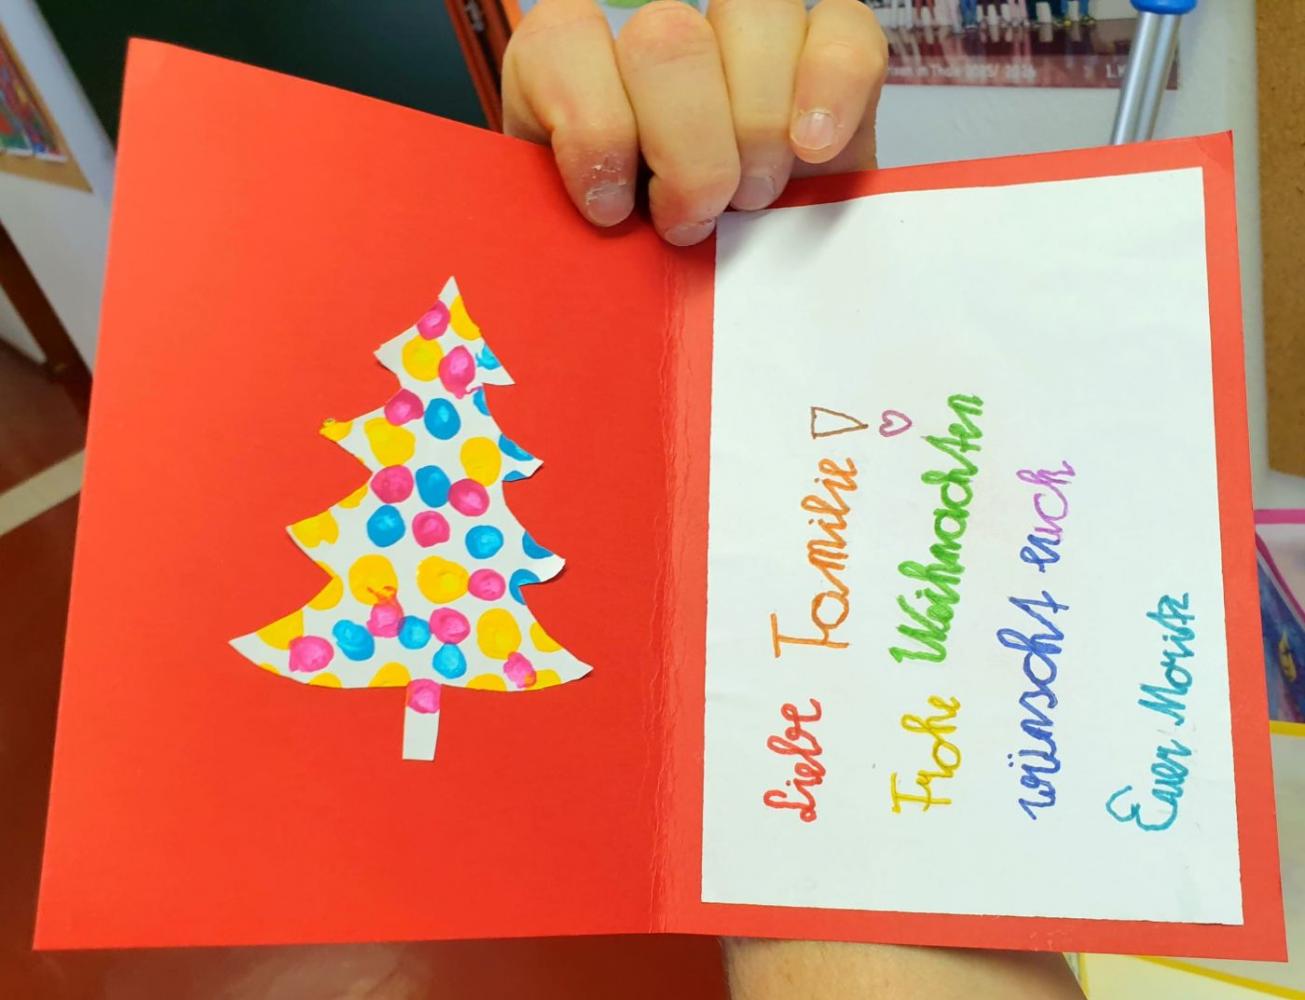 Liebe Familie
Frohe Weihnachten
wünscht euch
Euer Moritz
2015/2016
1.K